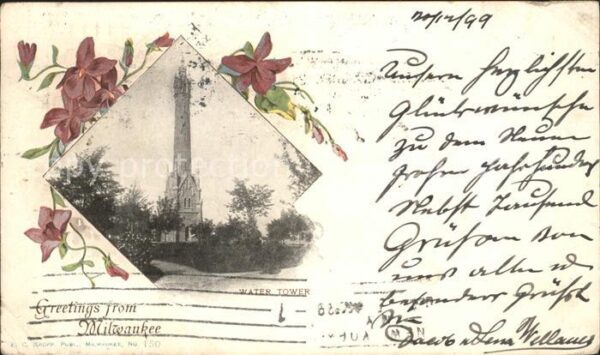 20/12/99
Unsern herzlichsten
Glückwünsche
zu dem Neuen
Jahrhundert
Nebst Tausend
Grüßen von
uns allen
besonders Grüßt
Jacob & Lena
WATER TOWER
Greetings from
Milwaukee
E. C. KROPP, PUBL., MILWAUKEE, NO. 150